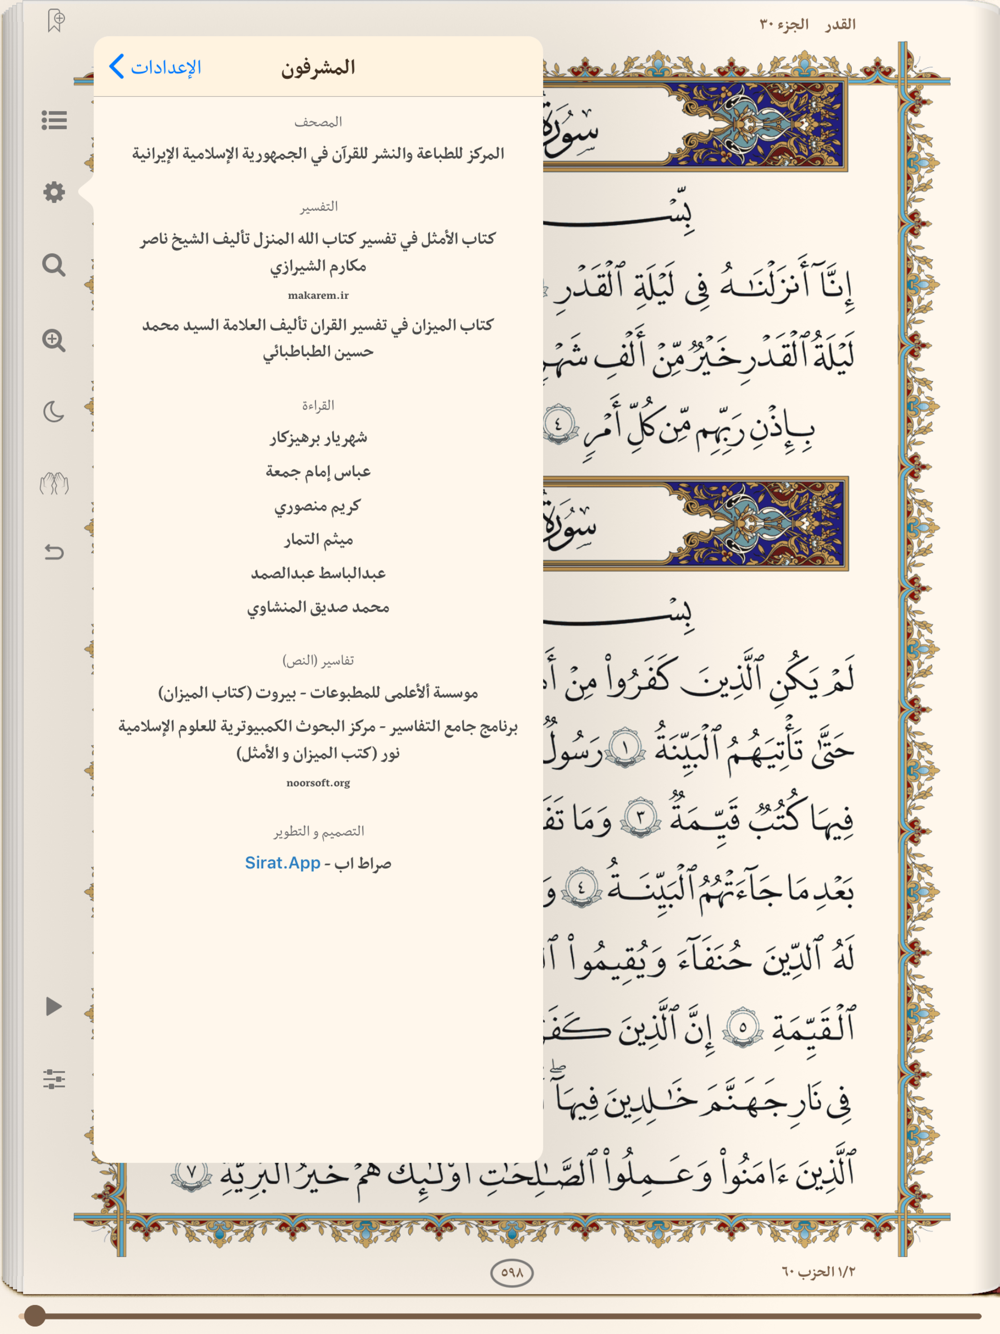 القدر الجزء ٣٠
الإعدادات
المشرفون
المصحف
المركز للطباعة والنشر للقرآن في الجمهورية الإسلامية الإيرانية
التفسير
كتاب الأمثل في تفسير كتاب الله المنزل تأليف الشيخ ناصر
مكارم الشيرازي
makarem.ir
كتاب الميزان في تفسير القران تأليف العلامة السيد محمد
حسين الطباطبائي
القراءة
شهريار برهيزكار
عباس إمام جمعة
كريم منصوري
ميثم التمار
عبدالباسط عبدالصمد
محمد صديق المنشاوي
تفاسير (النص)
موسسة ألأعلمى للمطبوعات - بيروت (كتاب الميزان)
برنامج جامع التفاسير - مركز البحوث الكمبيوترية للعلوم الإسلامية
نور (كتب الميزان و الأمثل)
noorsoft.org
التصميم و التطوير
صراط اب - Sirat.App
سورة
بِّسْـ
إِنَّآ أَنزَلْنَـٰهُ فِى لَيْلَةِ ٱلْقَدْرِ
لَيْلَةُ ٱلْقَدْرِ خَيْرٌ مِّنْ أَلْفِ شَهْرٍ
بِإِذْنِ رَبِّهِم مِّن كُلِّ أَمْرٍ ٤
سورة
بِسْـ
لَمْ يَكُنِ ٱلَّذِينَ كَفَرُوا۟ مِنْ
حَتَّىٰ تَأْتِيَهُمُ ٱلْبَيِّنَةُ ١ رَسُولٌ
فِيهَا كُتُبٌ قَيِّمَةٌ ٣ وَمَا
بَعْدِ مَا جَآءَتْهُمُ ٱلْبَيِّنَةُ ٤
لَهُ ٱلدِّينَ حُنَفَآءَ وَيُقِيمُوا۟
ٱلْقَيِّمَةِ ٥ إِنَّ ٱلَّذِينَ
فِى نَارِ جَهَنَّمَ خَـٰلِدِينَ فِيهَآ ۚ
ٱلَّذِينَ ءَامَنُوا۟ وَعَمِلُوا۟ ٱلصَّـٰلِحَـٰتِ أُو۟لَـٰٓئِكَ هُمْ خَيْرُ ٱلْبَرِيَّةِ ٧
١/٢ الحزب ٦٠
٥٩٨